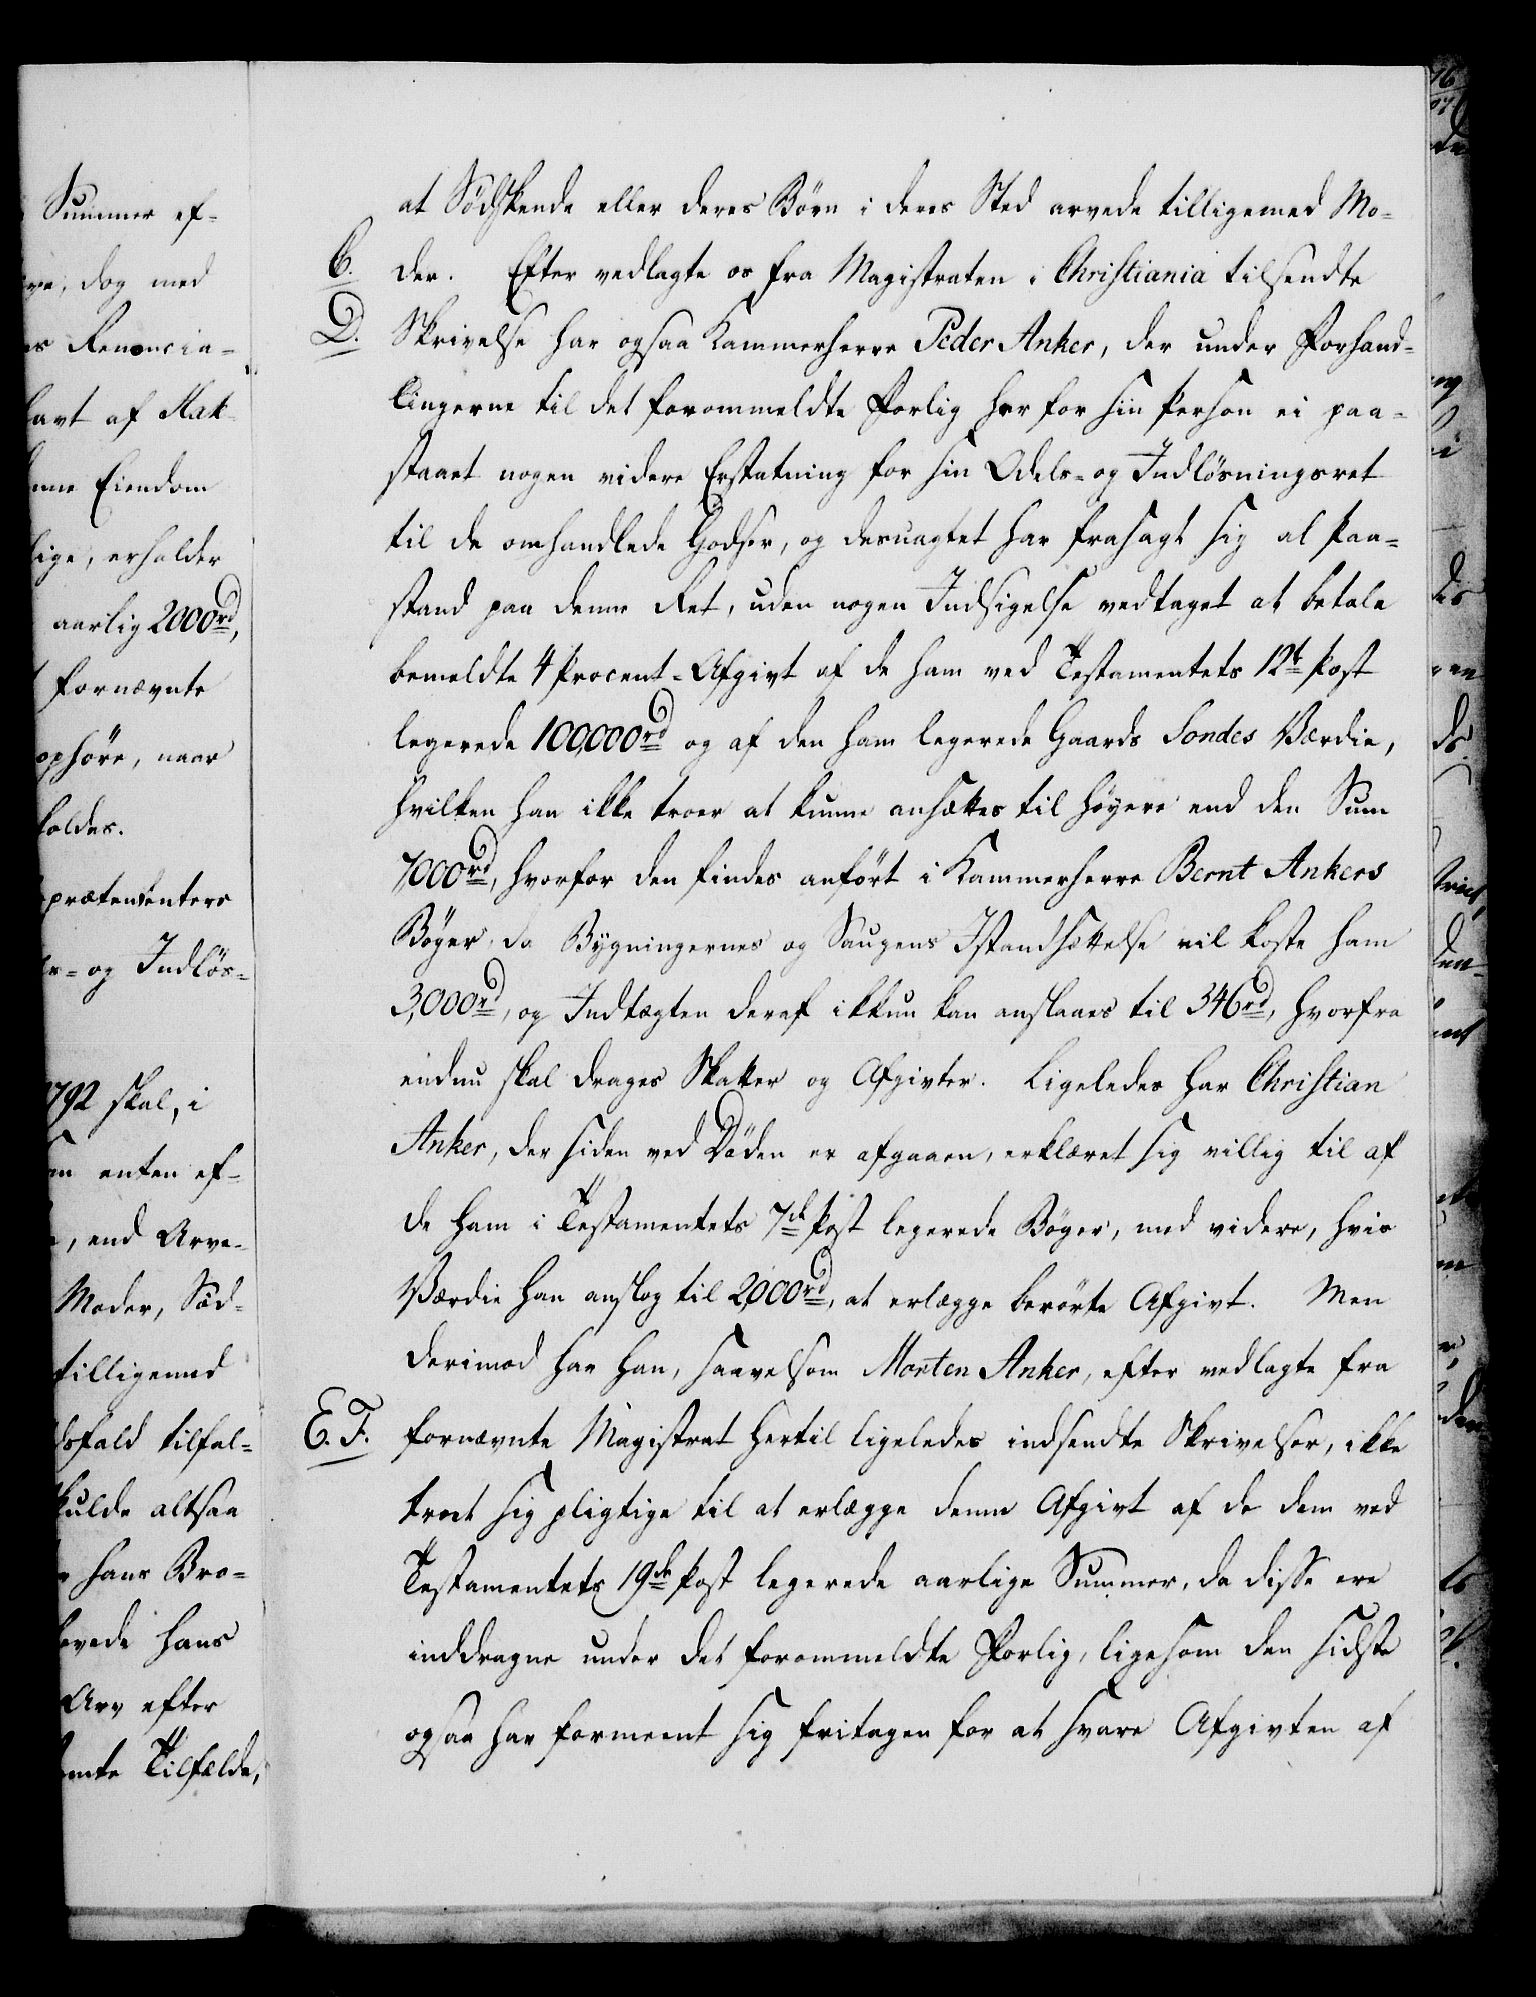 Summer ef-
dog med
Renoncia-
af Hak
Eiendom
erholder
aarlig 2000rd,
fornævnte
ophöre, naar
prætendentere
og Indlös-
1792 skal, i
enten ef-
end Arve-
Moder, Söd-
tilligemed
tilfal-
altsaa
hans Bro-
hans
Arv efter
Tilfælde,
at Sødskende eller deres Börn i deres Sted arvede tilligemed Mo-
C. der. Efter vedlagte os fra Magistraten i Christiania tilsendte
D. Skrivelse har ogsaa Kammerherre Peder Anker, der under Forhand-
lingerne til det forommeldte Forlig her for sin Person ei paa-
staaet nogen videre Erstatning for sin Odels- og Indlösningsret
til de omhandlede Godser, og desuagtet har frasagt sig al Paa-
stand paa denne Ret, uden nogen Indsigelse vedtaget at betale
bemeldte 4 Procent-Afgivt af de ham ved Testamentets 12te Post
legerede 100,000rd og af den ham legerede Gaards Sondes Værdie,
hvilken han ikke troer at kunne ansættes til höyere end den Sum
7,000rd, hvorfor den findes anfört i Kammerherre Bernt Ankers
Böger, da Bygningernes og Saugens Istandsættelse vil koste ham
3,000rd, og Indtægten deraf ikkun kan anslaaes til 346rd, hvorfra
endnu skal drages Skatter og Afgivter. Ligeledes har Christian
Anker, der siden ved Döden er afgaaen, erklæret sig villig til af
de ham i Testamentets 7de Post legerede Böger, med videre, hvis
Værdie han anslog til 2,000rd, at erlægge berörte Afgivt. Men
derimod har han, saavelsom Morten Anker, efter vedlagte fra
E. F. fornævnte Magistrat hertil ligeledes indsendte Skrivelser, ikke
troet sig pligtige til at erlægge denne Afgivt af de dem ved
Testamentets 19de Post legerede aarlige Summer, da disse ere
inddragne under det forommeldte Forlig, ligesom den sidste
ogsaa har formeent sig fritagen for at svare Afgivten af